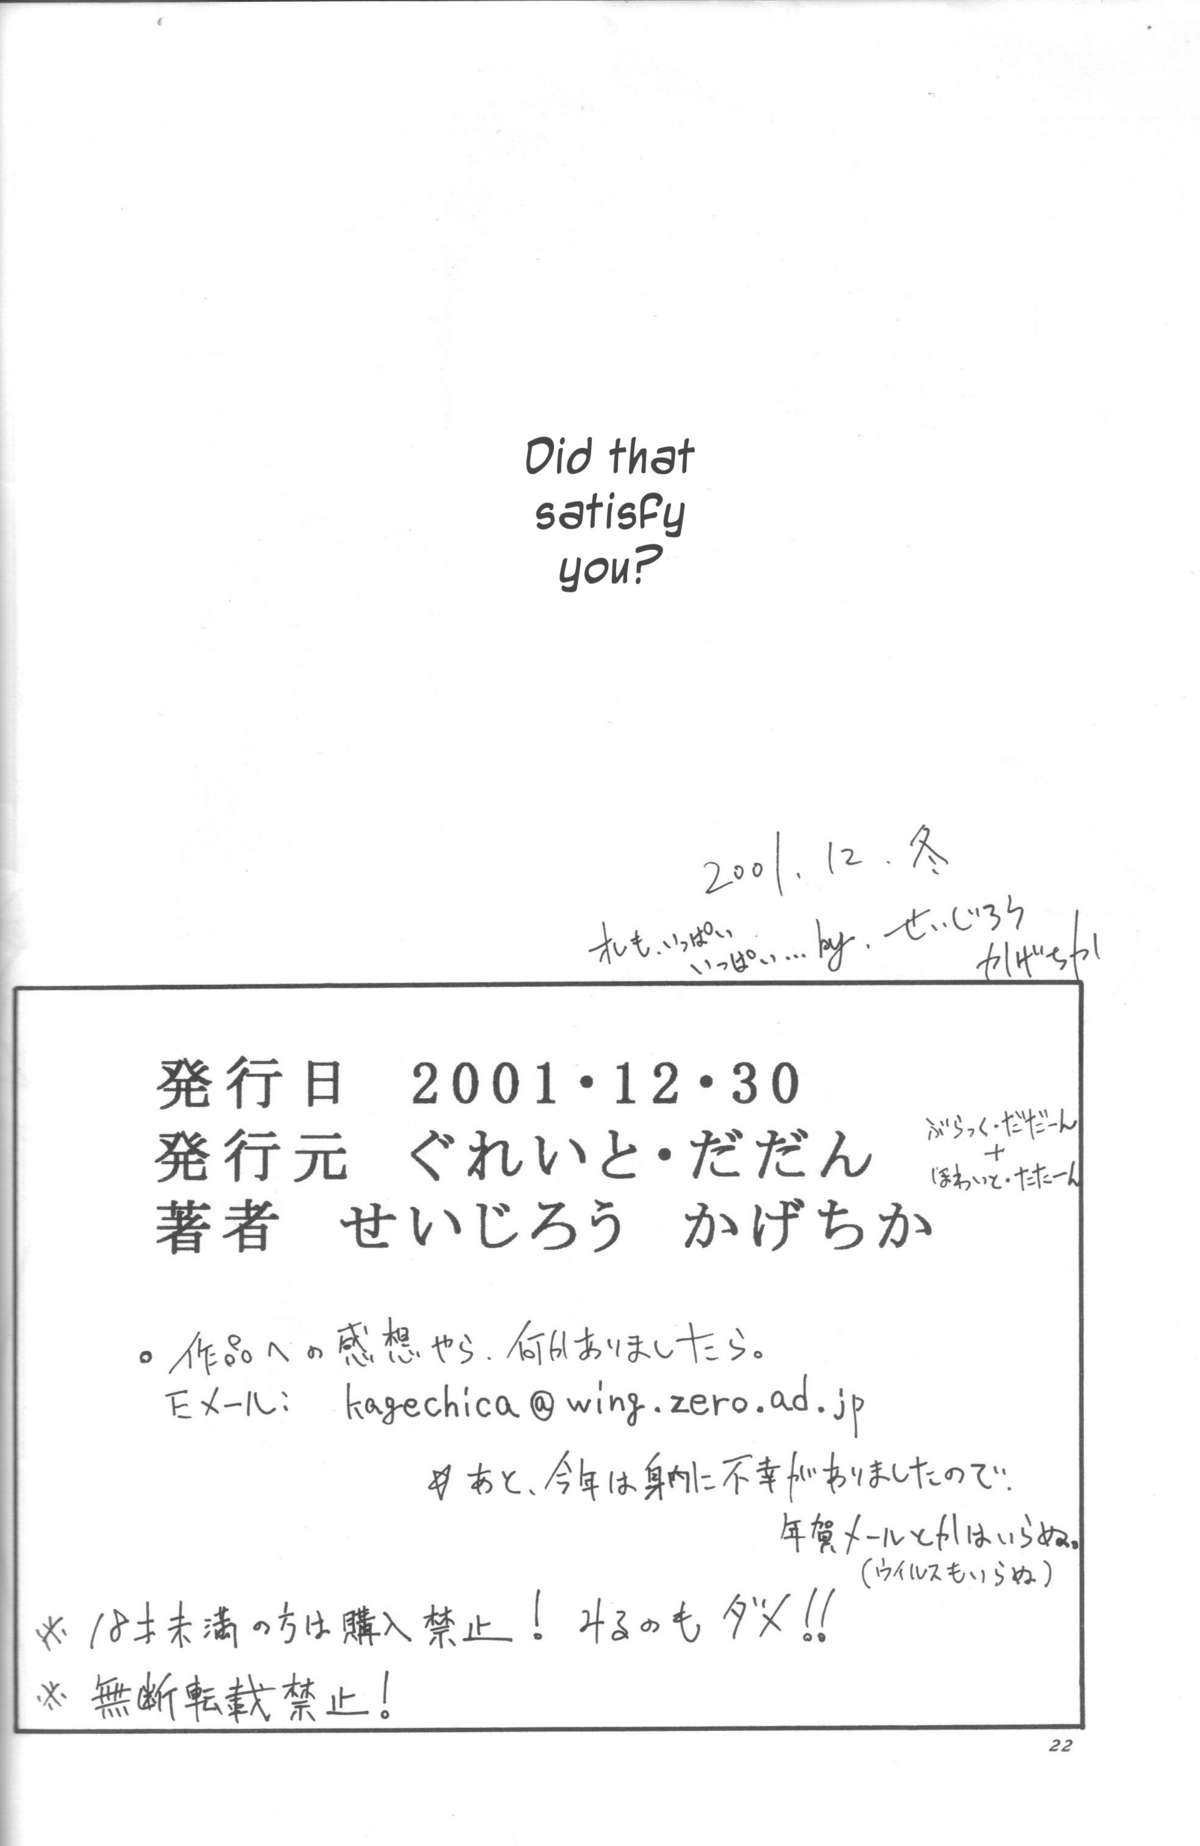 Did that
satisfy
you?
2001.12.冬
オレも、いっぱい
いっぱい… by. せいじろう
かげちか
発行日 2001・12・30
発行元 ぐれいと・だだん
ぶらっく・だだーん
+
ほわいと・だだーん
著者 せいじろう かげちか
。作品への感想やら、何かありましたら。
Eメール: kagechica@wing.zero.ad.jp
☆あと、今年は身内に不幸がありましたので、
年賀メールとかはいらぬ。
(ウイルスもいらぬ)
※ 18才未満の方は購入禁止! みるのもダメ!!
※ 無断転載禁止!
22